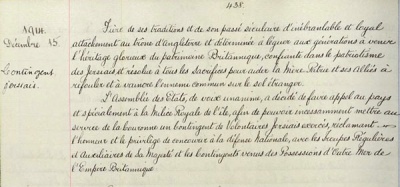 438.
1914.
Décembre 15.
Le contingent
Jersiais.
Fière de ses traditions et de son passé séculaire d'inébranlable et loyal
attachement au trône d'Angleterre et déterminée à léguer aux générations à venir
l'héritage glorieux du patriotisme Britannique, confiante dans le patriotisme
des Jersiais et résolue à tous les Sacrifices pour aider la Mère Patrie et ses Alliés à
refouler et à vaincre l'ennemi commun sur le sol étranger.
L'Assemblée des Etats, de voix unanime, a décidé de faire appel au pays
et spécialement à la Milice Royale de l'Ile, afin de pouvoir incessamment mettre au
service de la Couronne un contingent de Volontaires Jersiais exercés, réclamant
l'honneur et le privilège de concourir à la défense nationale, avec les Troupes Régulières
et Auxiliaires de Sa Majesté et les Contingents venus des Possessions d'Outre Mer de
l'Empire Britannique.